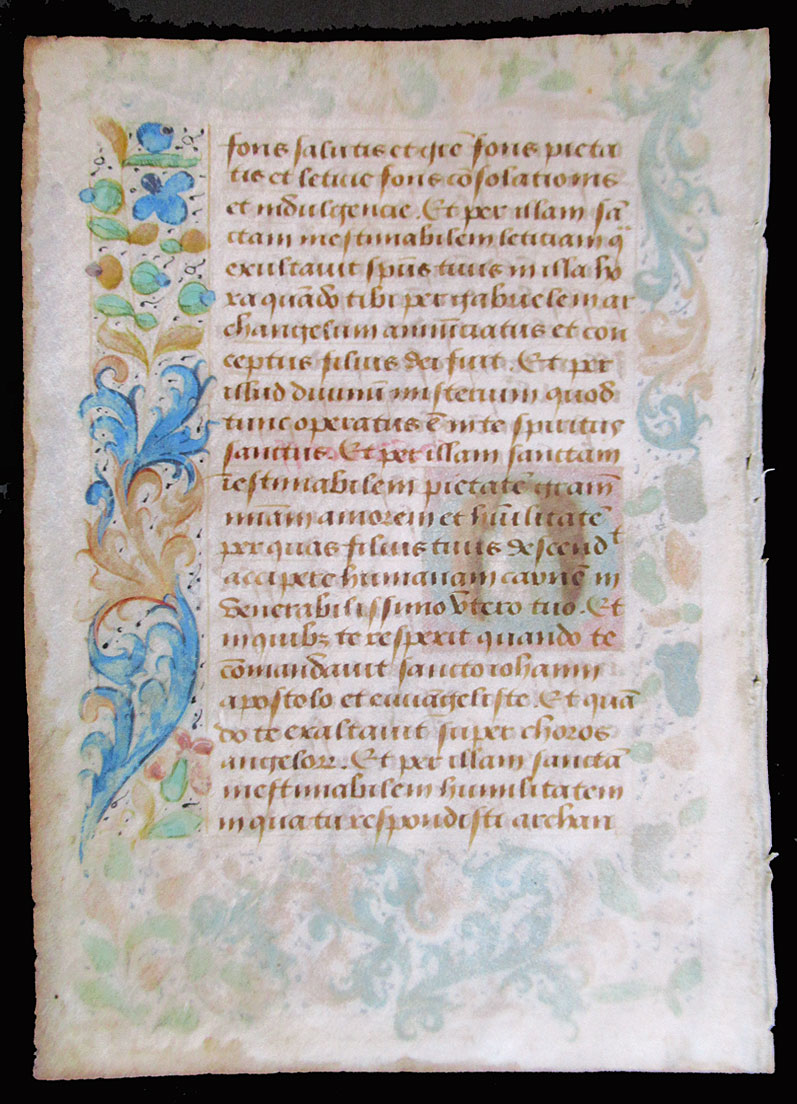 fons salutis et gr̄e fons pieta
tis et leticie fons cōsolationis
et indulgencie. Et per illam sā
ctam inestimabilem leticiam q̄
exultauit spūs tuus in illa ho
ra quādo tibi per gabrielem ar
changelum annūciatus et con
ceptus filius dei fuit. Et per
illud diuinū misterium quod
tunc operatus ē in te spiritus
sanctus. Et per illam sanctam
inestimabilem pietatē grām
amorem et hūilitatē
per quas filius tuus descendᵗ
accipere humanam carnē in
venerabilissimo vtero tuo. Et
in quibꝫ te respexit quando te
cōmandauit sancto iohanni
apostolo et euuāgeliste. Et quā
do te exaltauit super choros
angeloꝝ. Et per illam sanctā
inestimabilem humilitatem
in qua tu respondisti archan